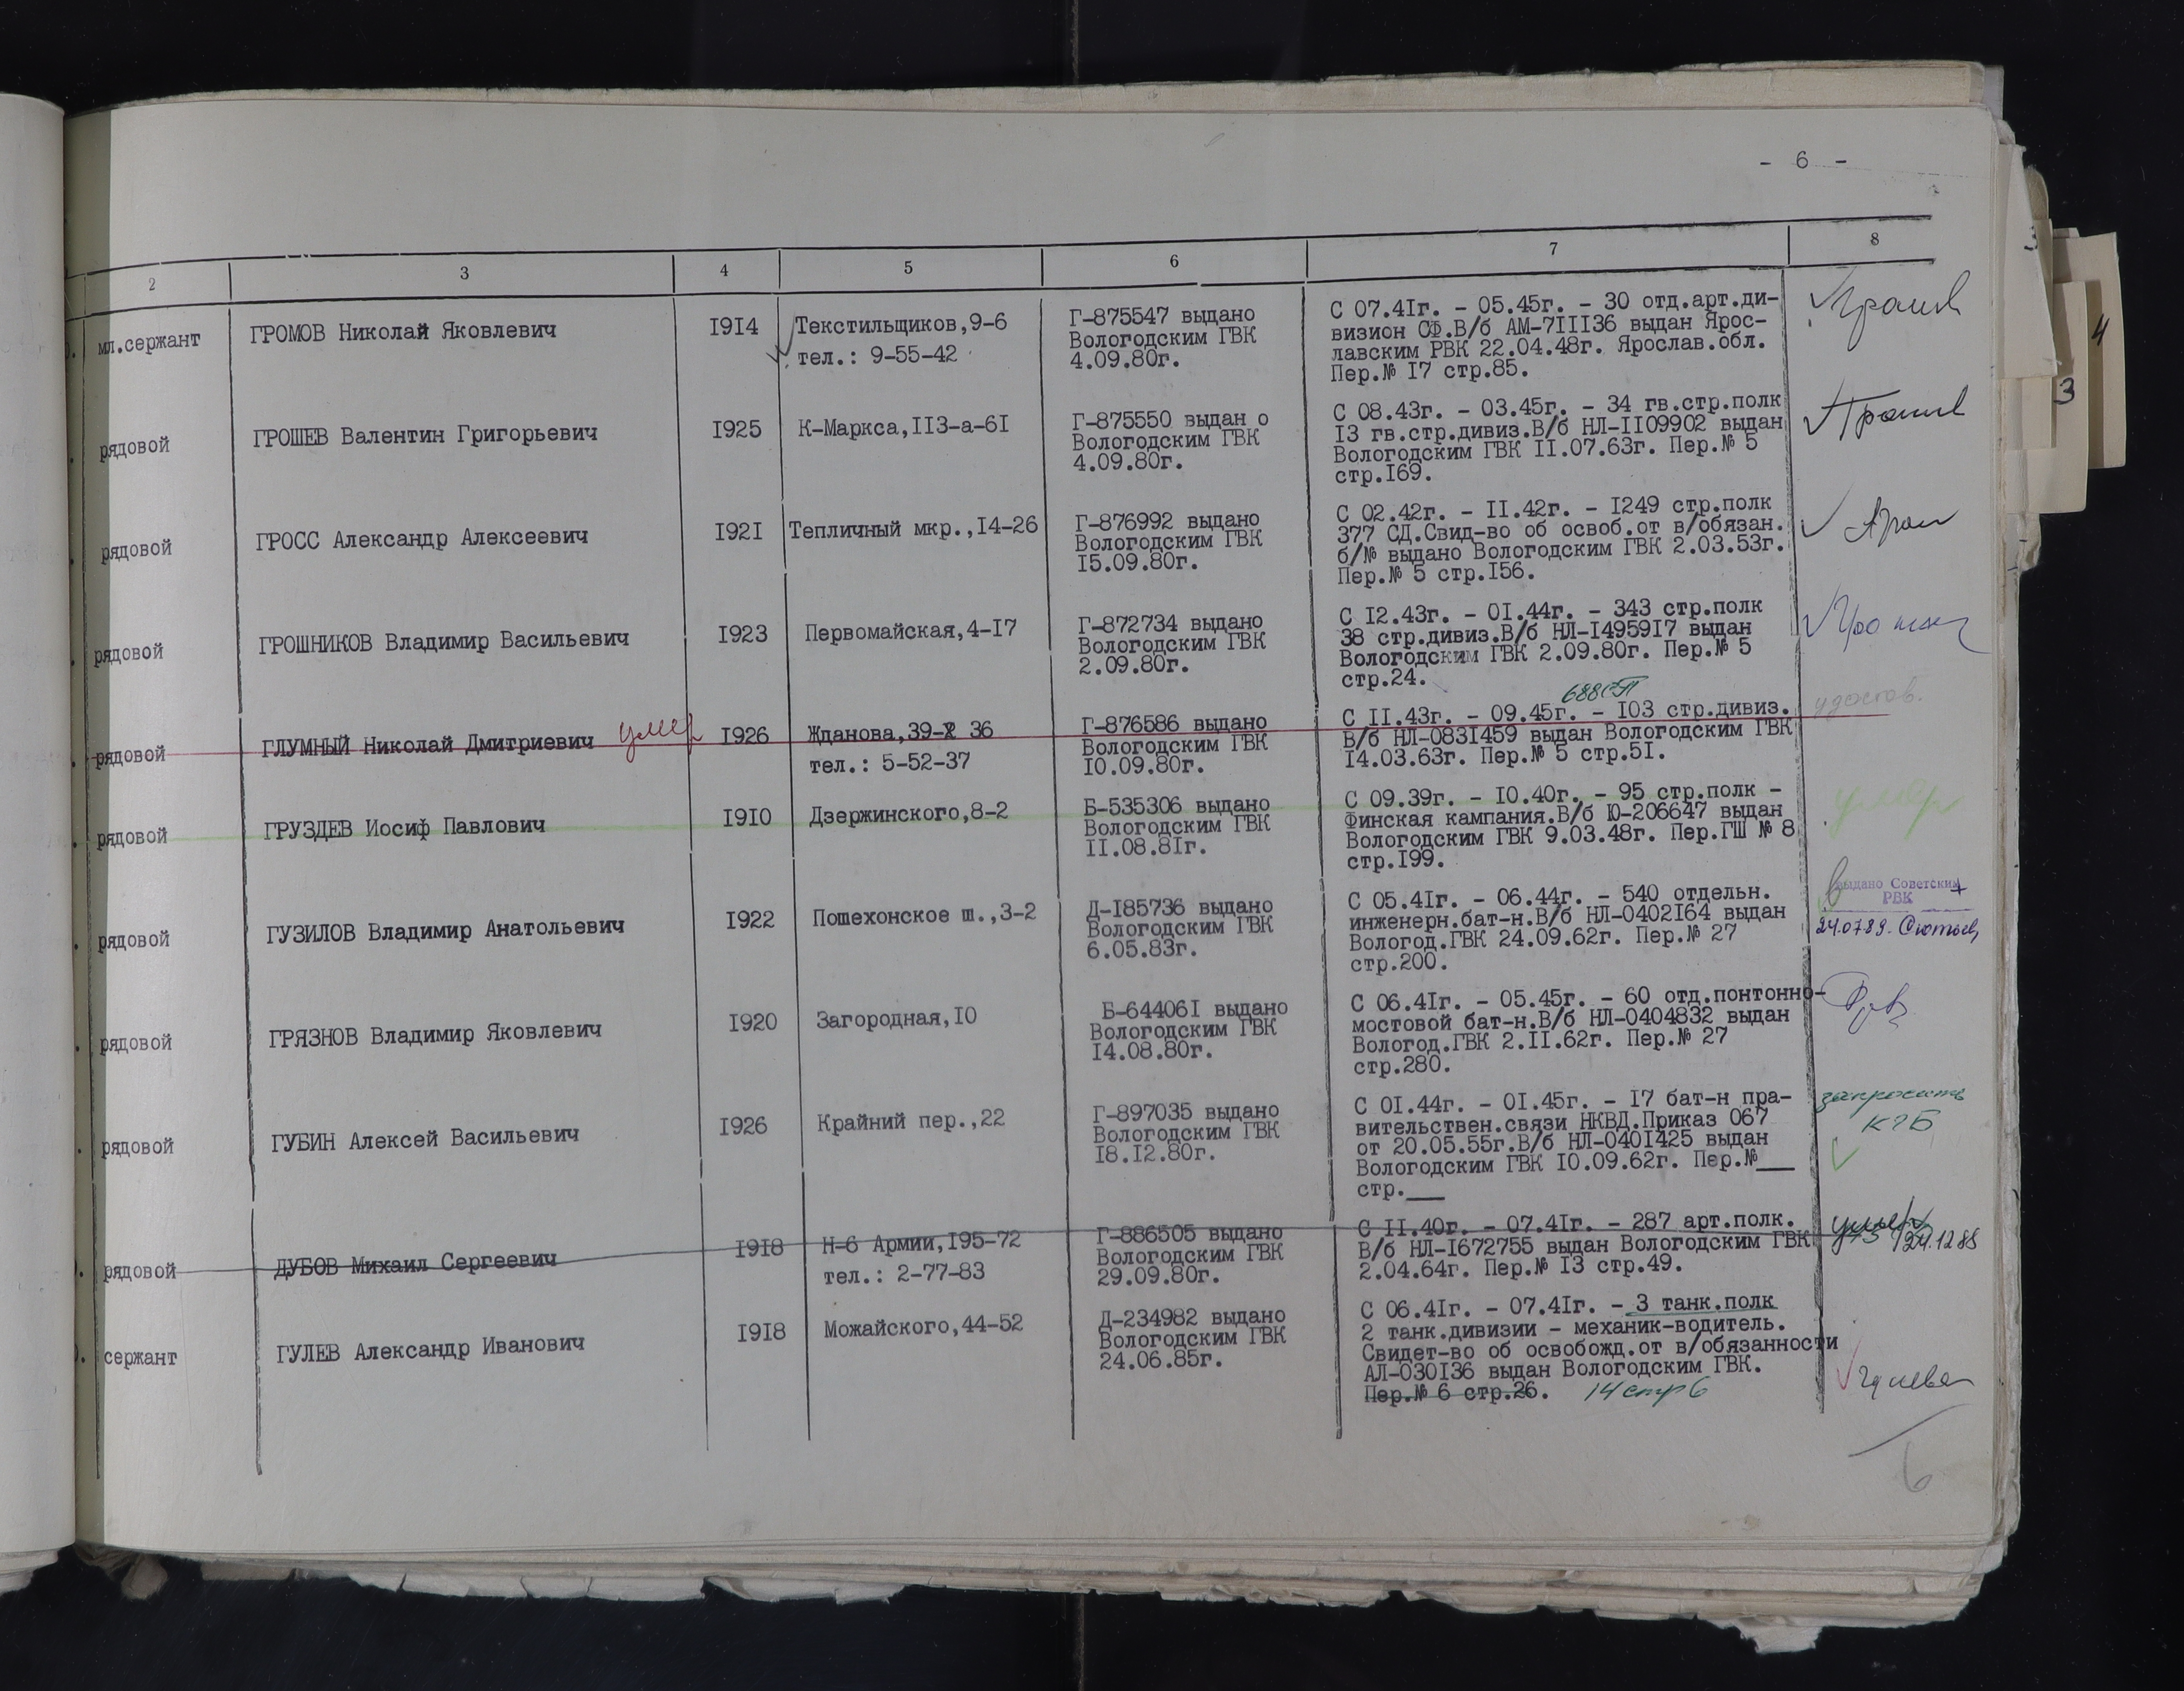 - 6 -
2 3 4 5 6 7 8
мл.сержант
ГРОМОВ Николай Яковлевич
1914
Текстильщиков,9-6
тел.: 9-55-42
Г-875547 выдано
Вологодским ГВК
4.09.80г.
С 07.41г. - 05.45г. - 30 отд.арт.ди-
визион СФ.В/б АМ-711136 выдан Ярос-
лавским РВК 22.04.48г. Ярослав.обл.
Пер.№ 17 стр.85.
рядовой
ГРОШЕВ Валентин Григорьевич
1925
К-Маркса,113-а-61
Г-875550 выдан о
Вологодским ГВК
4.09.80г.
С 08.43г. - 03.45г. - 34 гв.стр.полк
13 гв.стр.дивиз.В/б НЛ-1109902 выдан
Вологодским ГВК 11.07.63г. Пер.№ 5
стр.169.
рядовой
ГРОСС Александр Алексеевич
1921
Тепличный мкр.,14-26
Г-876992 выдано
Вологодским ГВК
15.09.80г.
С 02.42г. - 11.42г. - 1249 стр.полк
377 СД.Свид-во об освоб.от в/обязан.
б/№ выдано Вологодским ГВК 2.03.53г.
Пер.№ 5 стр.156.
рядовой
ГРОШНИКОВ Владимир Васильевич
1923
Первомайская,4-17
Г-872734 выдано
Вологодским ГВК
2.09.80г.
С 12.43г. - 01.44г. - 343 стр.полк
38 стр.дивиз.В/б НЛ-1495917 выдан
Вологодским ГВК 2.09.80г. Пер.№ 5
стр.24.
688СП
рядовой
ГЛУМНЫЙ Николай Дмитриевич умер
1926
Жданова,39- 36
тел.: 5-52-37
Г-876586 выдано
Вологодским ГВК
10.09.80г.
С 11.43г. - 09.45г. - 103 стр.дивиз.
В/б НЛ-0831459 выдан Вологодским ГВК
14.03.63г. Пер.№ 5 стр.51.
удостов.
рядовой
ГРУЗДЕВ Иосиф Павлович
1910
Дзержинского,8-2
Б-535306 выдано
Вологодским ГВК
11.08.81г.
С 09.39г. - 10.40г. - 95 стр.полк -
Финская кампания.В/б Ю-206647 выдан
Вологодским ГВК 9.03.48г. Пер.ГШ № 8
стр.199.
умер
рядовой
ГУЗИЛОВ Владимир Анатольевич
1922
Пошехонское ш.,3-2
Д-185736 выдано
Вологодским ГВК
6.05.83г.
С 05.41г. - 06.44г. - 540 отдельн.
инженерн.бат-н.В/б НЛ-0402164 выдан
Вологод.ГВК 24.09.62г. Пер.№ 27
стр.200.
выдано Советским
РВК
24.07.89.
рядовой
ГРЯЗНОВ Владимир Яковлевич
1920
Загородная,10
Б-644061 выдано
Вологодским ГВК
14.08.80г.
С 06.41г. - 05.45г. - 60 отд.понтонно-
мостовой бат-н.В/б НЛ-0404832 выдан
Вологод.ГВК 2.11.62г. Пер.№ 27
стр.280.
рядовой
ГУБИН Алексей Васильевич
1926
Крайний пер.,22
Г-897035 выдано
Вологодским ГВК
18.12.80г.
С 01.44г. - 01.45г. - 17 бат-н пра-
вительствен.связи НКВД.Приказ 067
от 20.05.55г.В/б НЛ-0401425 выдан
Вологодским ГВК 10.09.62г. Пер.№___
стр.___
запросить
КГБ
рядовой
ДУБОВ Михаил Сергеевич
1918
Н-6 Армии,195-72
тел.: 2-77-83
Г-886505 выдано
Вологодским ГВК
29.09.80г.
С 11.40г. - 07.41г. - 287 арт.полк.
В/б НЛ-1672755 выдан Вологодским ГВК
2.04.64г. Пер.№ 13 стр.49.
умер
сержант
ГУЛЕВ Александр Иванович
1918
Можайского,44-52
Д-234982 выдано
Вологодским ГВК
24.06.85г.
С 06.41г. - 07.41г. - 3 танк.полк
2 танк.дивизии - механик-водитель.
Свидет-во об освобожд.от в/обязанности
АЛ-030136 выдан Вологодским ГВК.
Пер.№ 6 стр.26. 14 стр 6
Гулева
6
3
4
3